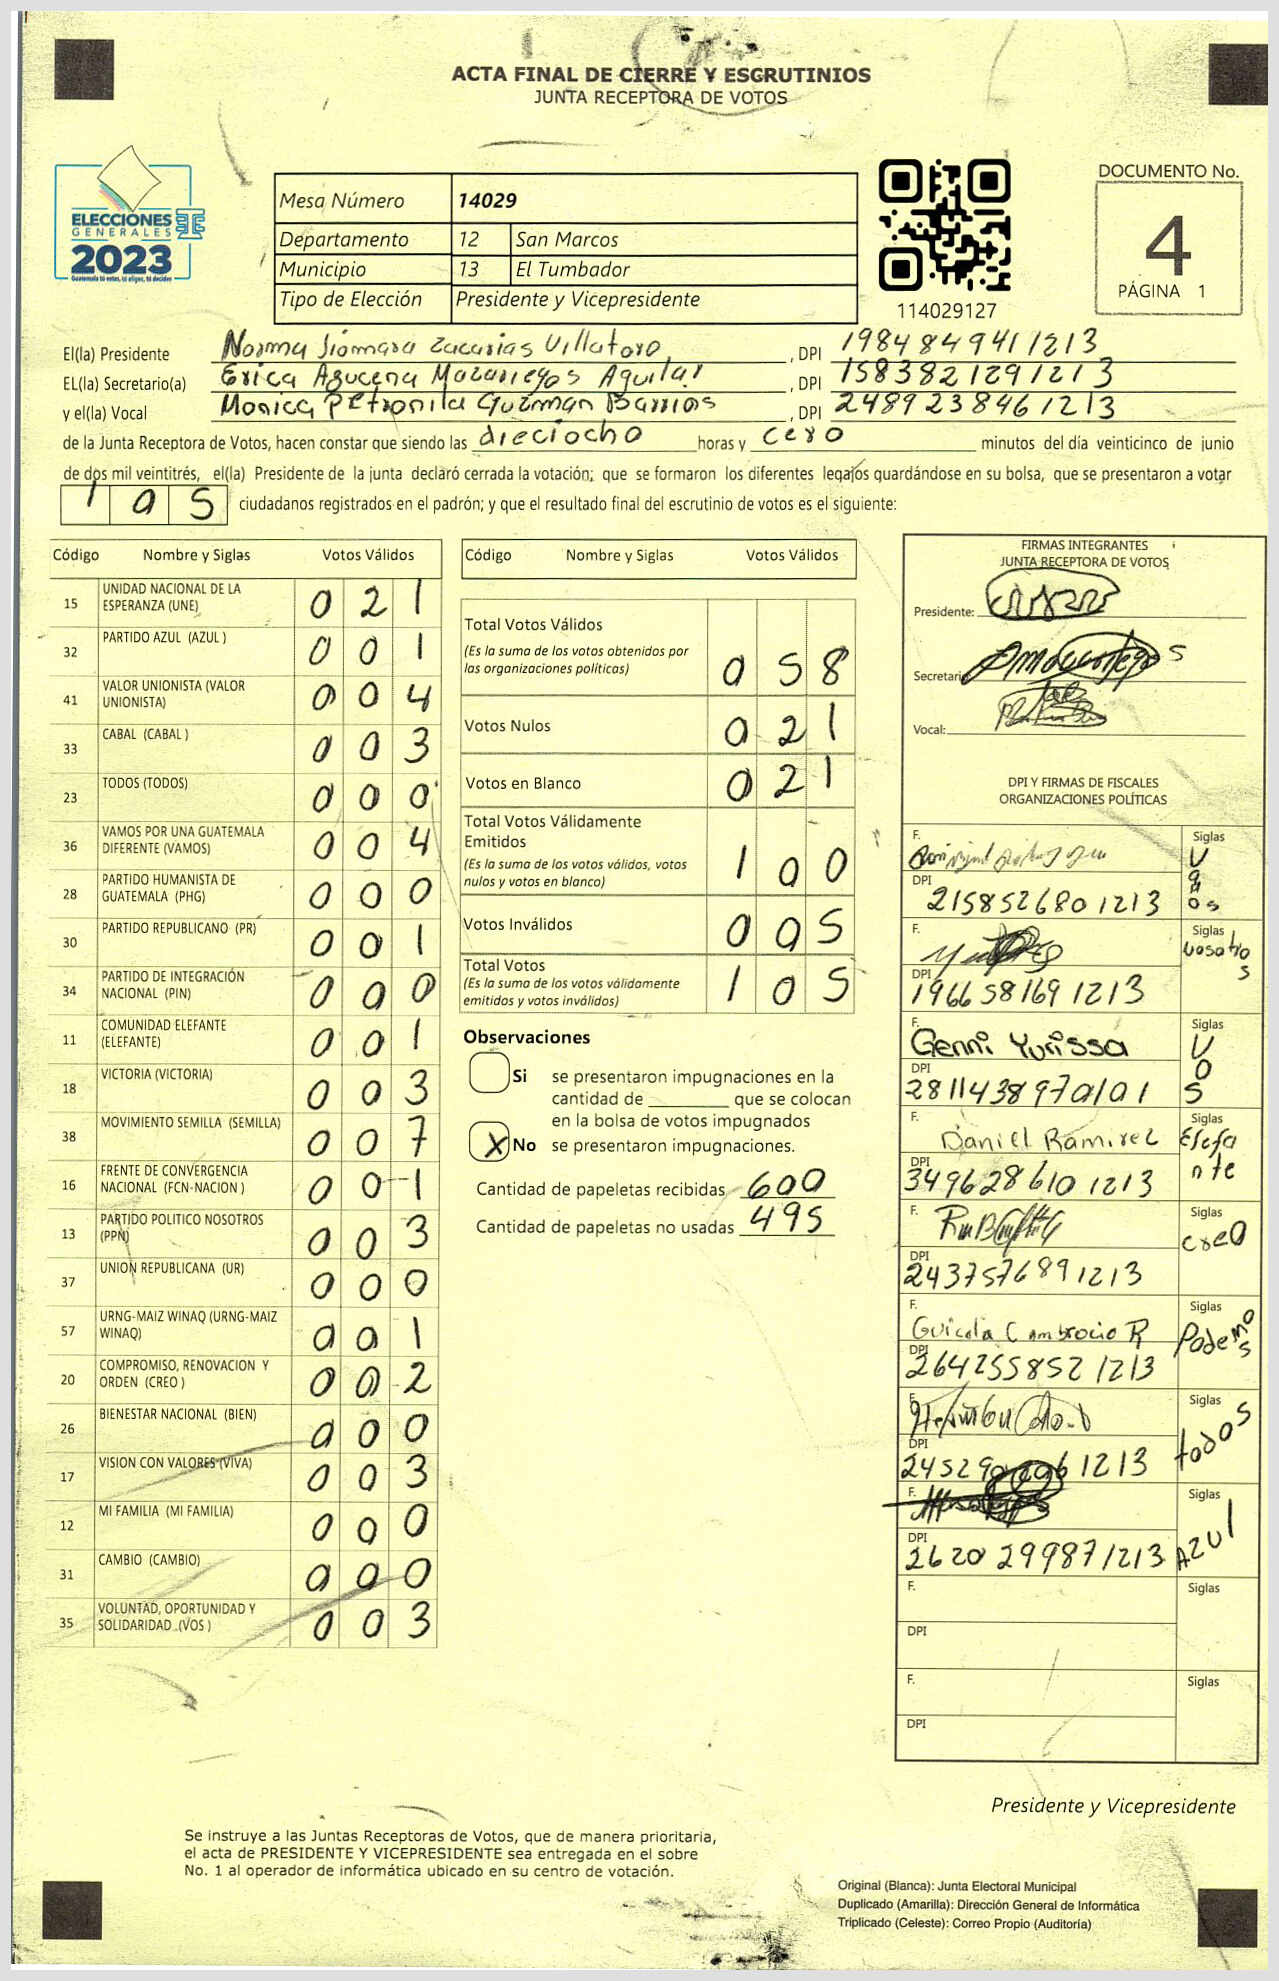 ACTA FINAL DE CIERRE Y ESCRUTINIOS
JUNTA RECEPTORA DE VOTOS
ELECCIONES
GENERALES
2023
Guatemala tú votas, tú eliges, tú decides
Mesa Número 14029
Departamento 12 San Marcos
Municipio 13 El Tumbador
Tipo de Elección Presidente y Vicepresidente
114029127
DOCUMENTO No.
4
PÁGINA 1
El(la) Presidente Norma Jiomara Zacarias Villatoro, DPI 1984849411213
EL(la) Secretario(a) Erica Azucena Mazariegos Aguilar, DPI 1583821291213
y el(la) Vocal Monica Petronila Guzman Barrios, DPI 2489238461213
de la Junta Receptora de Votos, hacen constar que siendo las dieciocho horas y cero minutos del día veinticinco de junio
de dos mil veintitrés, el(la) Presidente de la junta declaró cerrada la votación; que se formaron los diferentes legajos guardándose en su bolsa, que se presentaron a votar
105 ciudadanos registrados en el padrón; y que el resultado final del escrutinio de votos es el siguiente:
Código Nombre y Siglas Votos Válidos
15 UNIDAD NACIONAL DE LA ESPERANZA (UNE) 021
32 PARTIDO AZUL (AZUL ) 001
41 VALOR UNIONISTA (VALOR UNIONISTA) 004
33 CABAL (CABAL ) 003
23 TODOS (TODOS) 000
36 VAMOS POR UNA GUATEMALA DIFERENTE (VAMOS) 004
28 PARTIDO HUMANISTA DE GUATEMALA (PHG) 000
30 PARTIDO REPUBLICANO (PR) 001
34 PARTIDO DE INTEGRACIÓN NACIONAL (PIN) 000
11 COMUNIDAD ELEFANTE (ELEFANTE) 001
18 VICTORIA (VICTORIA) 003
38 MOVIMIENTO SEMILLA (SEMILLA) 007
16 FRENTE DE CONVERGENCIA NACIONAL (FCN-NACION ) 001
13 PARTIDO POLITICO NOSOTROS (PPN) 003
37 UNION REPUBLICANA (UR) 000
57 URNG-MAIZ WINAQ (URNG-MAIZ WINAQ) 001
20 COMPROMISO, RENOVACION Y ORDEN (CREO ) 002
26 BIENESTAR NACIONAL (BIEN) 000
17 VISION CON VALORES (VIVA) 003
12 MI FAMILIA (MI FAMILIA) 000
31 CAMBIO (CAMBIO) 000
35 VOLUNTAD, OPORTUNIDAD Y SOLIDARIDAD (VOS ) 003
Código Nombre y Siglas Votos Válidos
Total Votos Válidos
(Es la suma de los votos obtenidos por
las organizaciones políticas) 058
Votos Nulos 021
Votos en Blanco 021
Total Votos Válidamente
Emitidos
(Es la suma de los votos válidos, votos
nulos y votos en blanco) 100
Votos Inválidos 005
Total Votos
(Es la suma de los votos válidamente
emitidos y votos inválidos) 105
Observaciones
Si se presentaron impugnaciones en la
cantidad de ________ que se colocan
en la bolsa de votos impugnados
X No se presentaron impugnaciones.
Cantidad de papeletas recibidas 600
Cantidad de papeletas no usadas 495
FIRMAS INTEGRANTES
JUNTA RECEPTORA DE VOTOS
Presidente:
Secretario:
Vocal:
DPI Y FIRMAS DE FISCALES
ORGANIZACIONES POLÍTICAS
F. Siglas Vamos
DPI 2158526801213
F. Siglas Nosotros
DPI 1966581691213
F. Genni Yurissa Siglas VOS
DPI 2811438970101
F. Daniel Ramirez Siglas Elefante
DPI 3496286101213
F. Siglas creo
DPI 2437576891213
F. Ambrocio R Siglas Podemos
DPI 2642558521213
F. Siglas todos
DPI 1213
F. Siglas AZUL
DPI 2620299871213
F. Siglas
DPI
F. Siglas
DPI
Presidente y Vicepresidente
Se instruye a las Juntas Receptoras de Votos, que de manera prioritaria,
el acta de PRESIDENTE Y VICEPRESIDENTE sea entregada en el sobre
No. 1 al operador de informática ubicado en su centro de votación.
Original (Blanca): Junta Electoral Municipal
Duplicado (Amarilla): Dirección General de Informática
Triplicado (Celeste): Correo Propio (Auditoría)